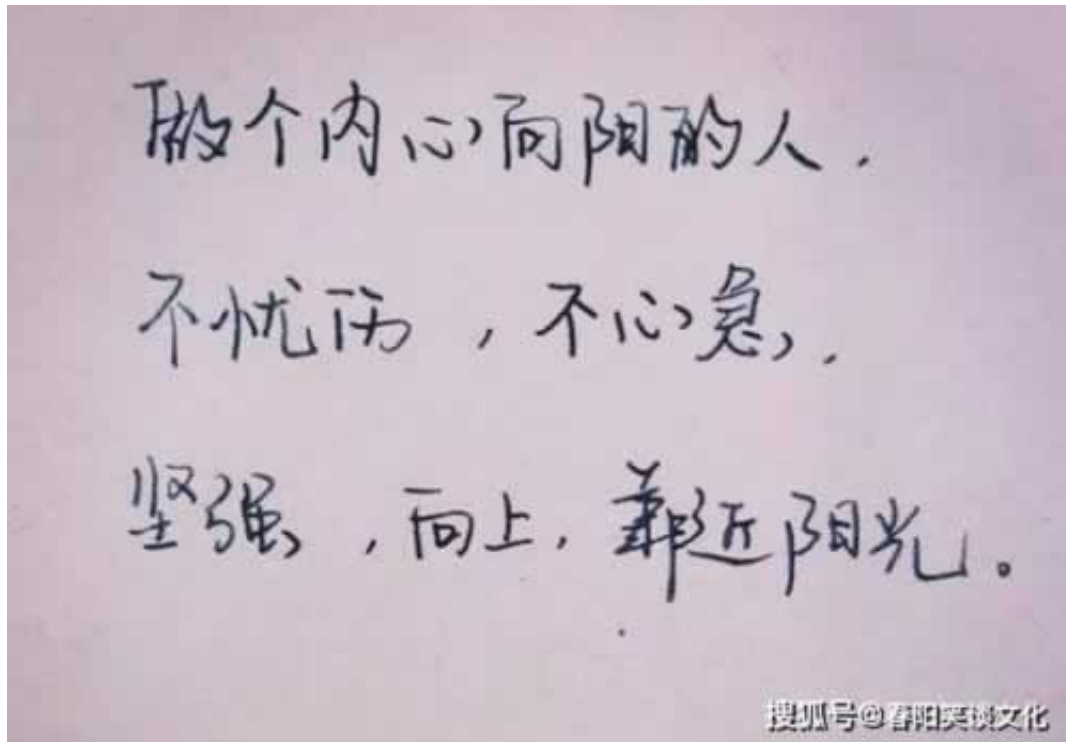 做个内心向阳的人，
不忧伤，不心急，
坚强，向上，靠近阳光。
搜狐号@春阳笑谈文化